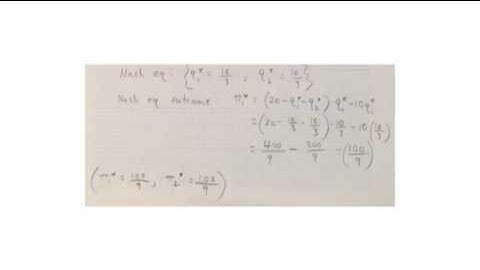 Nash eq: {q₁* = 10/3, q₂* = 10/3}
Nash eq outcome: π₁* = (20 - q₁* - q₂*) · q₁* - 10q₁*
= (20 - 10/3 - 10/3) · 10/3 - 10(10/3)
= 400/9 - 300/9 = (100/9)
(π₁* = 100/9, π₂* = 100/9)